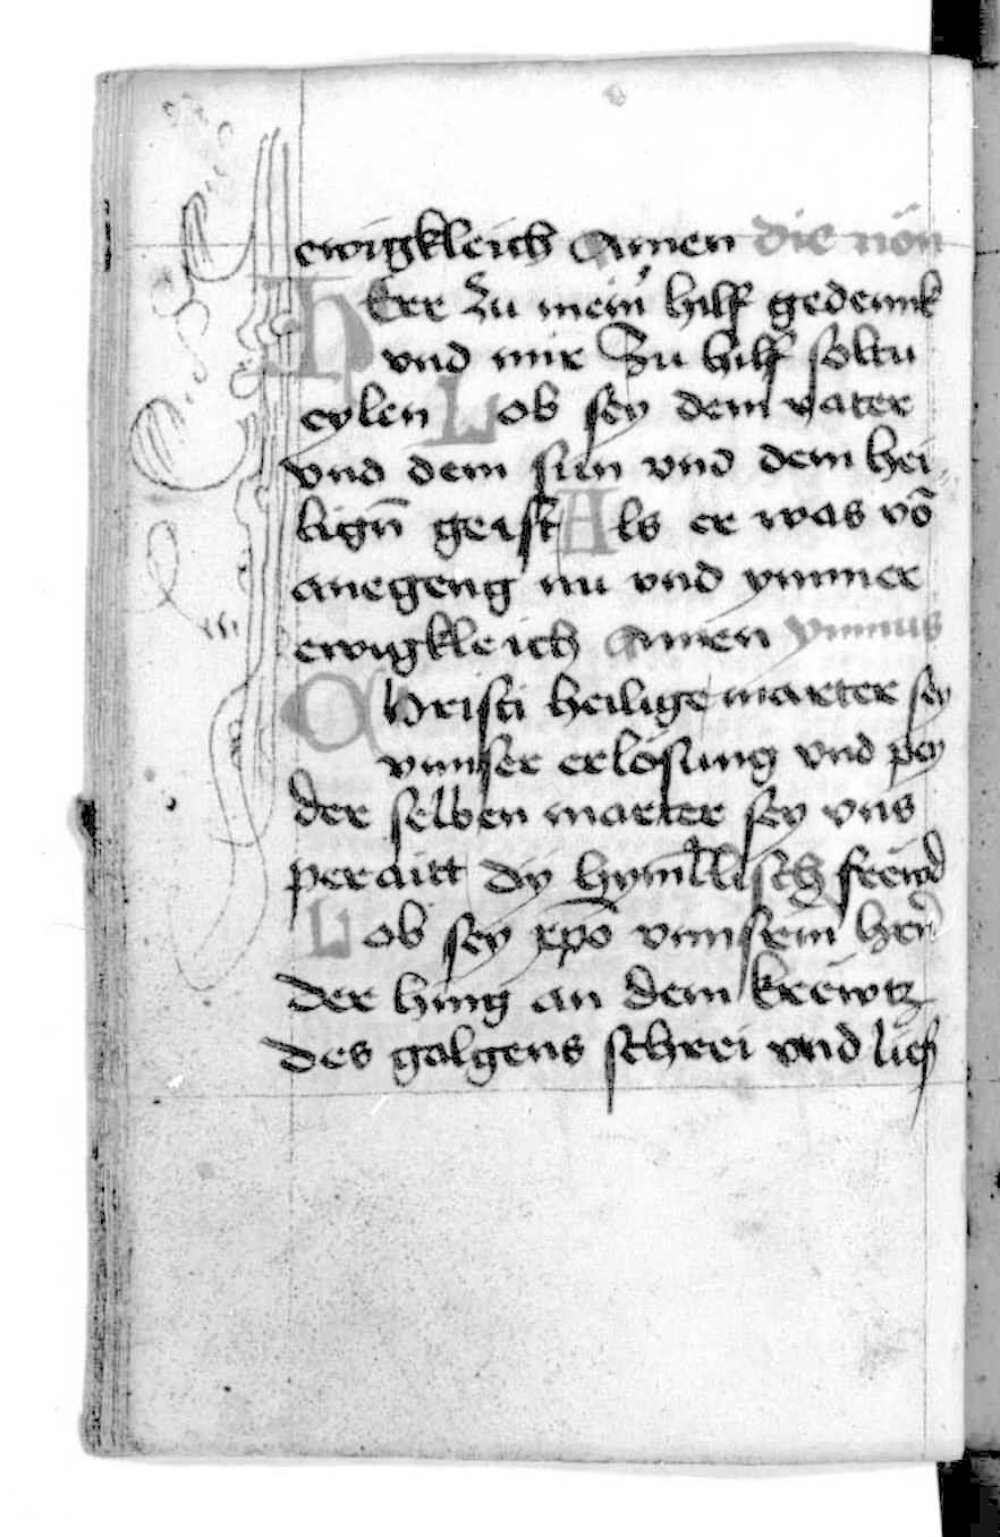 ewigkleich Amen die nön
HErr zu meim̄ hilf gedennk
vnd mir zu hilf soltu
eylen Lob sey dem vater
vnd dem sun vnd dem hei
lign̄ geist Als er was vō
anegeng nu vnd ymmer
ewigkleich Amen ymnus
CHristi heilige marter sey
vnnser erlösung vnd pey
der selben marter sey vns
peraitt dÿ hym̄llisch frëwd
Lob sey xp̄o vnnserm hrn̄
der hing an dem krëwtz
des galgens schrei vnd lief